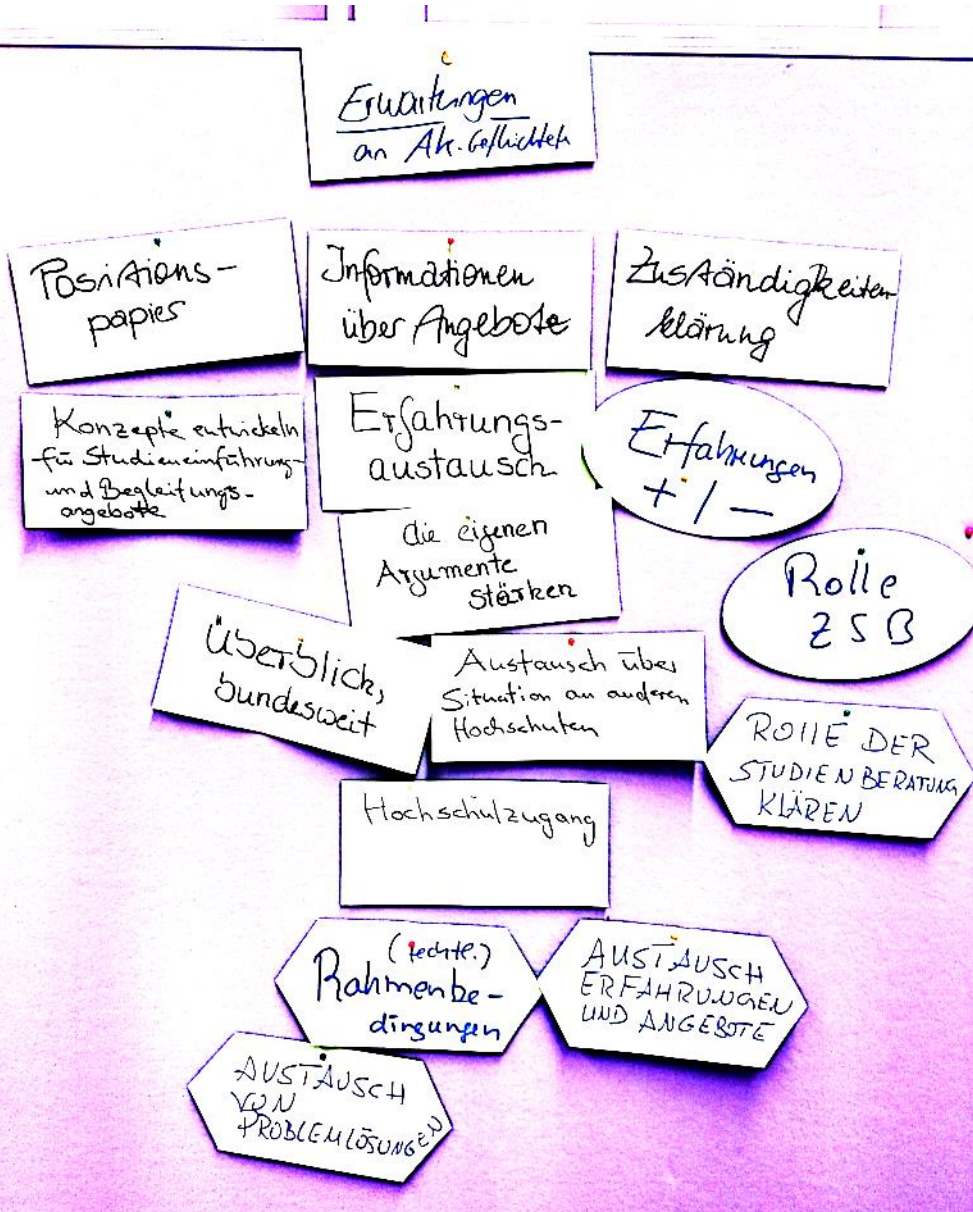 Erwartungen
an Ak. Geflüchtete
Positions-
papier
Informationen
über Angebote
Zuständigkeiten
klärung
Konzepte entwickeln
für Studieneinführung-
und Begleitungs-
angebote
Erfahrungs-
austausch
Erfahrungen
+ / -
die eigenen
Argumente
stärken
Rolle
ZSB
Überblick,
bundesweit
Austausch über
Situation an anderen
Hochschulen
ROLLE DER
STUDIENBERATUNG
KLÄREN
Hochschulzugang
(rechtl.)
Rahmenbe-
dingungen
AUSTAUSCH
ERFAHRUNGEN
UND ANGEBOTE
AUSTAUSCH
VON
PROBLEMLÖSUNGEN